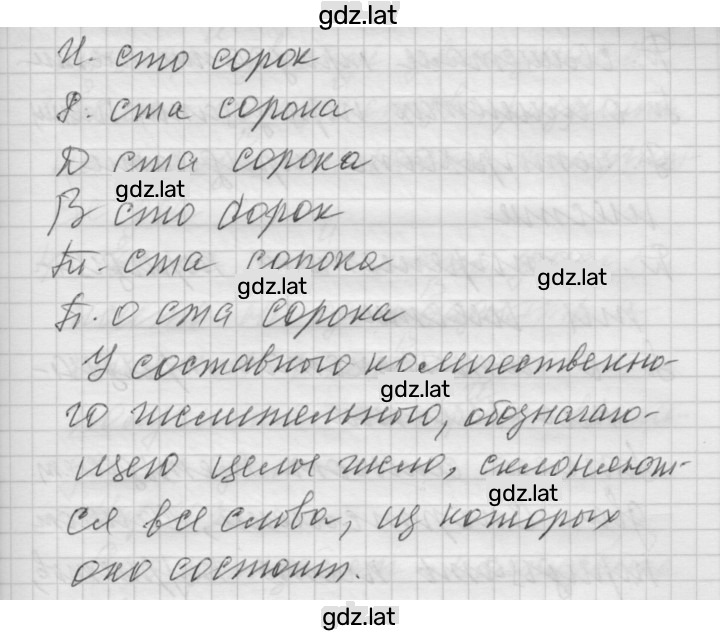 gdz.lat
И. сто сорок
Р. ста сорока
Д ста сорока
gdz.lat
В сто сорок
Тп. ста сорока
gdz.lat
gdz.lat
П. о ста сорока
У составного количественно-
gdz.lat
го числительного, обозначаю-
щего целое число, склоняют-
gdz.lat
ся все слова, из которых
оно состоит.
gdz.lat